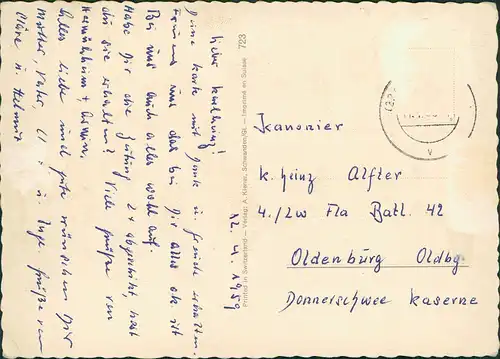 12.4.1959
Lieber Karlheinz!
Deine Karte mit Dank u. Freude erhalten.
Freue uns das bei Dir alles ok ist
Bei uns auch alles wohl auf.
Habe Dir die Zeitung 2x abgeschickt, hast
du sie erhalten? Viele Grüße von
Alles liebe und gute wünschen Dir
Mutter, Vater u. Grüße von
und Helmut
723
Printed in Switzerland — Verlag: A. Kienzi, Schwanden/Gl. — Imprimé en Suisse
Kanonier
K. Heinz Alfter
4./Lw Fla Batl. 42
Oldenburg Oldbg
Donnerschwee Kaserne